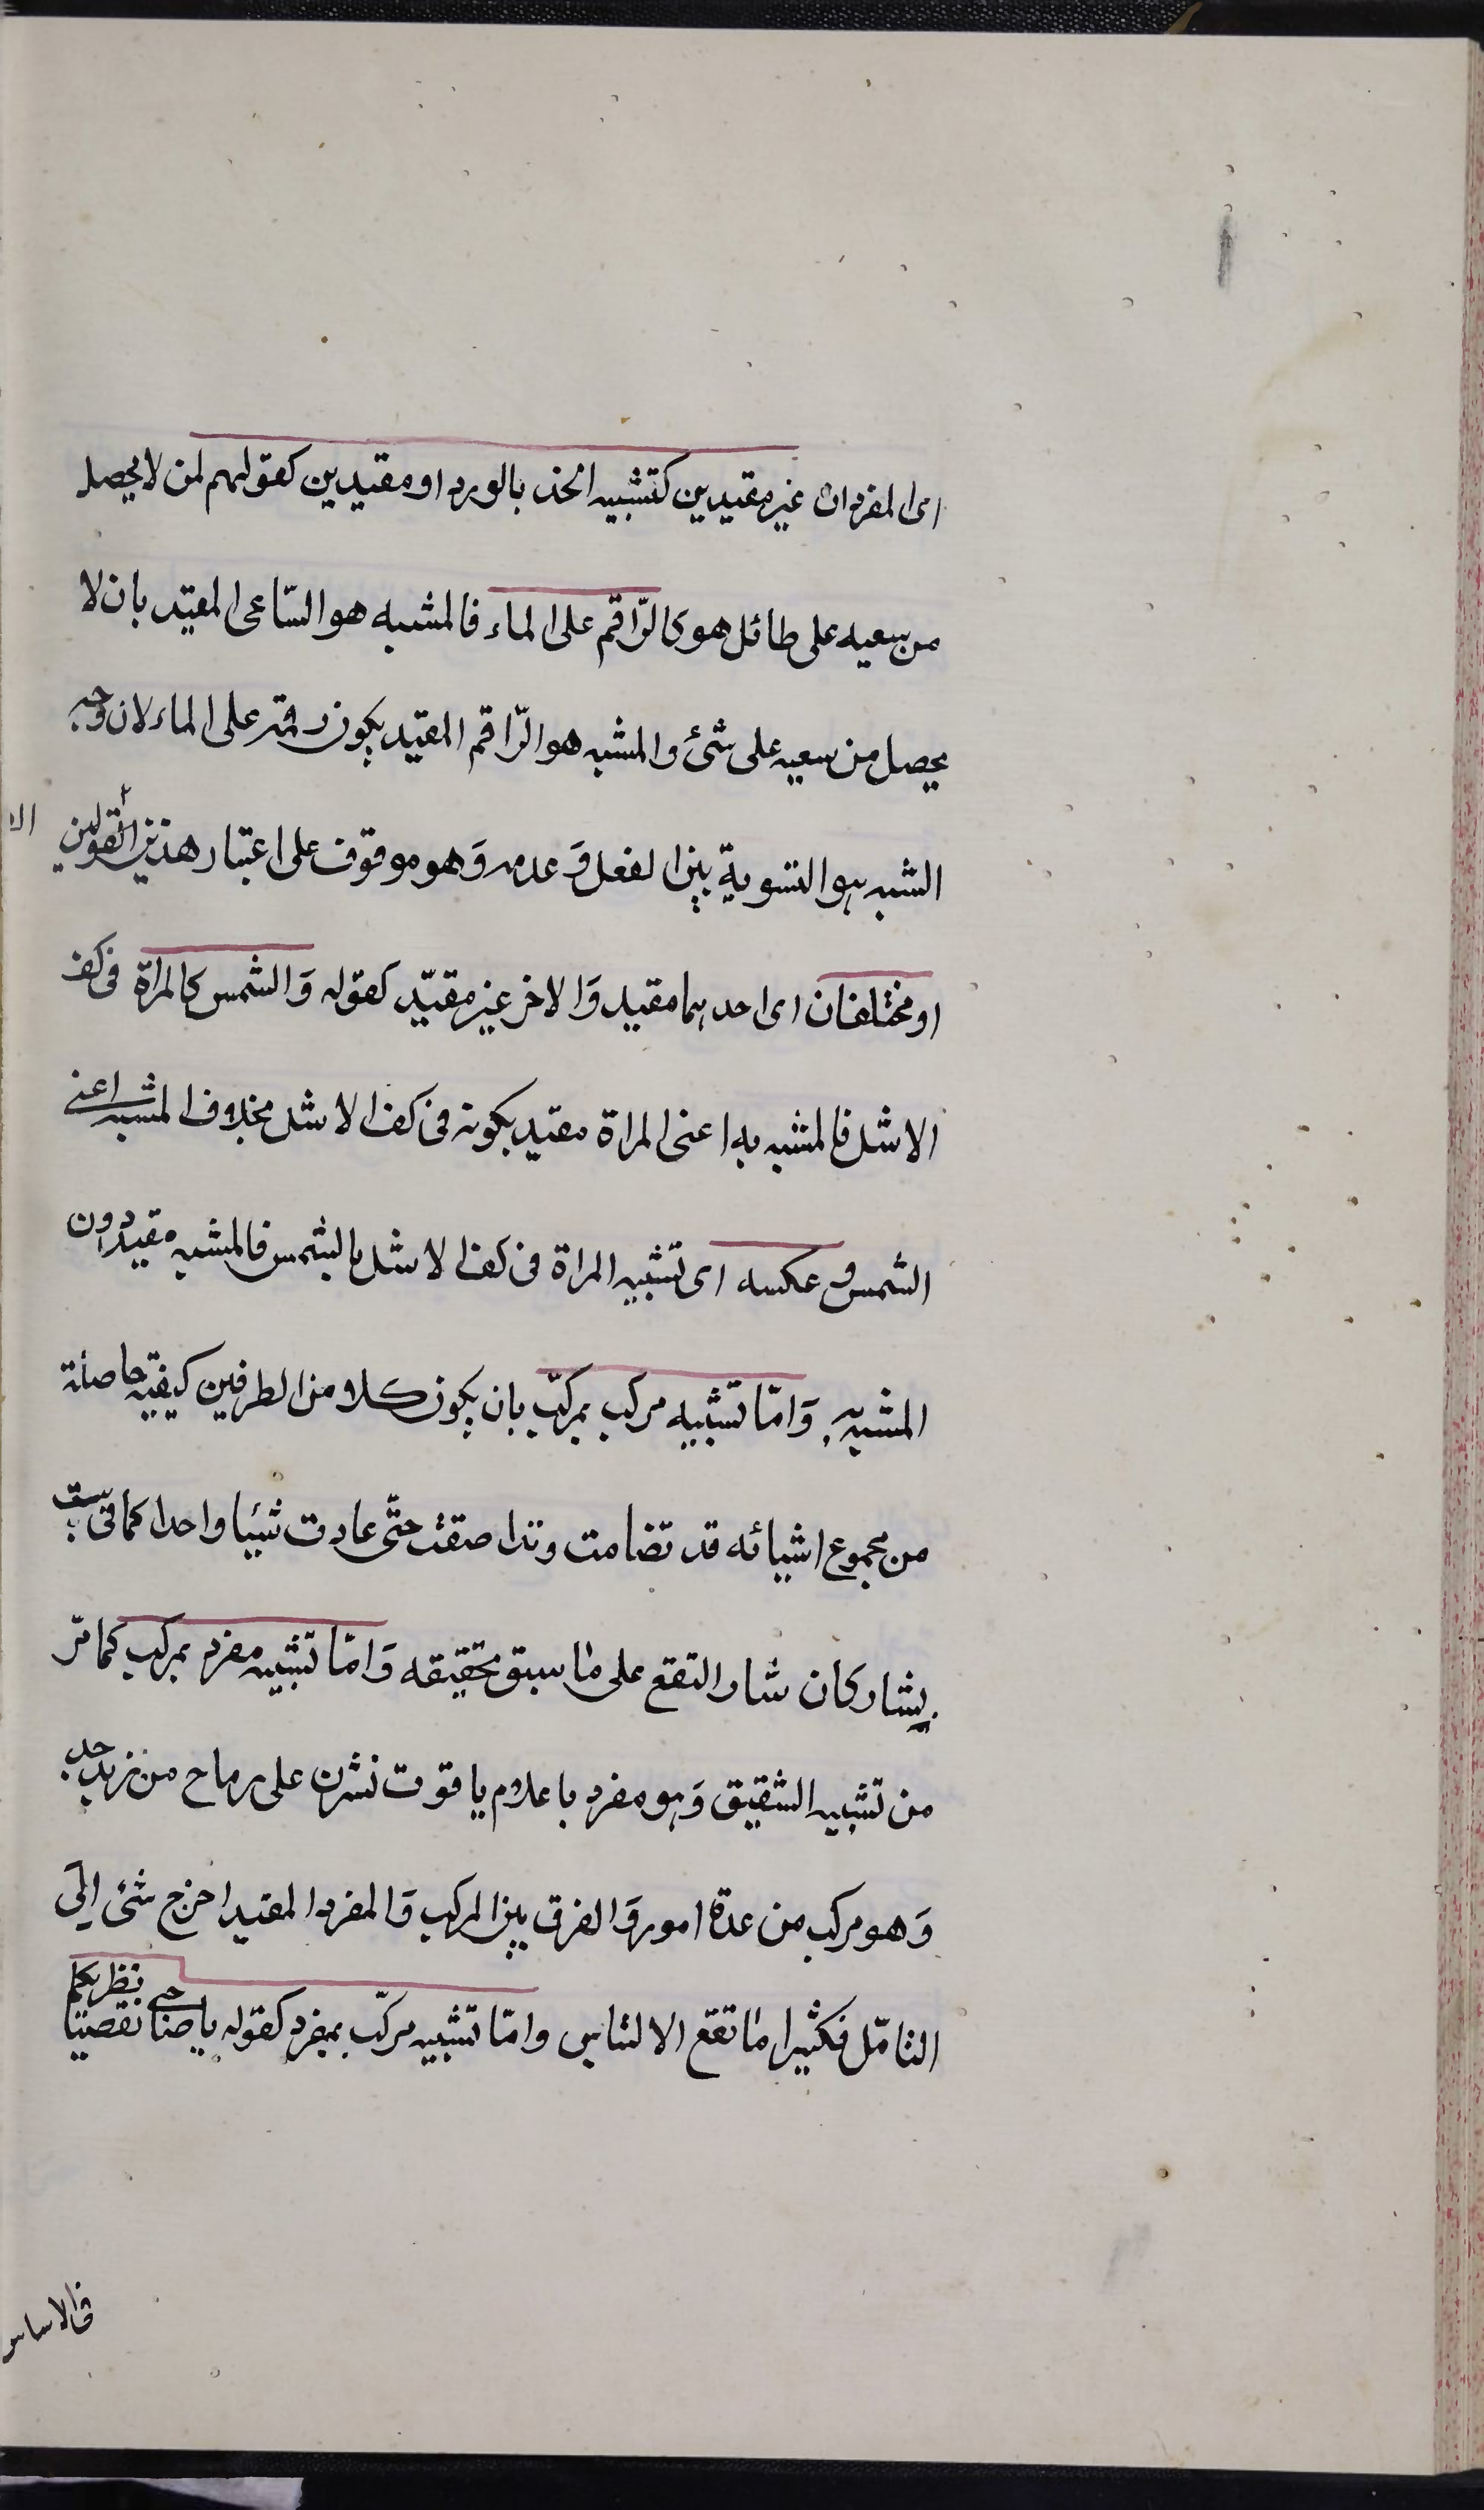 اى المفردان غير مقيدين كتشبيه الخذ بالورد او مقيدين كقولهم لمن لا يحصل
من سعيه على طائل هو كالرّاقم على الماء فالمشبه هو السّاعى المقيّد بان لا
يحصل من سعيه على شئ والمشبه هو الرّاقم المقيّد بكون رقمه على الماء لان وجه
الشبه هو التسوية بين الفعل وَعدمه وَهو موقوف على اعتبار هذين القولين
او مختلفان اى احدهما مقيد وَالاخر غير مقيّد كقوله وَالشمس كالمراة فى كف
الاشل فالمشبه به اعنى المراة مقيد بكونه فى كف الاشل بخلاف المشبه اعنى
الشمس وعكسه اى تشبيه المراة فى كف الاشل بالشمس فالمشبه مقيد دون
المشبه به وَامّا تشبيه مركب بمركّب بان يكون كلا من الطرفين كيفية حاصلة
من مجموع اشيائه قد تضامت وتداصقت حتّى عادت شيئا واحدا كما فى بيت
بشار كان مثار النقع على ما سبق تحقيقه وَامّا تشبيه مفرد بمركب كما مرّ
من تشبيه الشقيق وَهو مفرد باعلام ياقوت نشرن على رماح من زبرجد
وَهو مركب من عدة امور وَالفرق بين المركب وَالمفرد المقيد احرج شئ الى
التامّل فكثيرا ما تقع الالتباس وامّا تشبيه مركّب بمفرد كقوله يا صاحبى تقصيا نظريكما
فى الاساس